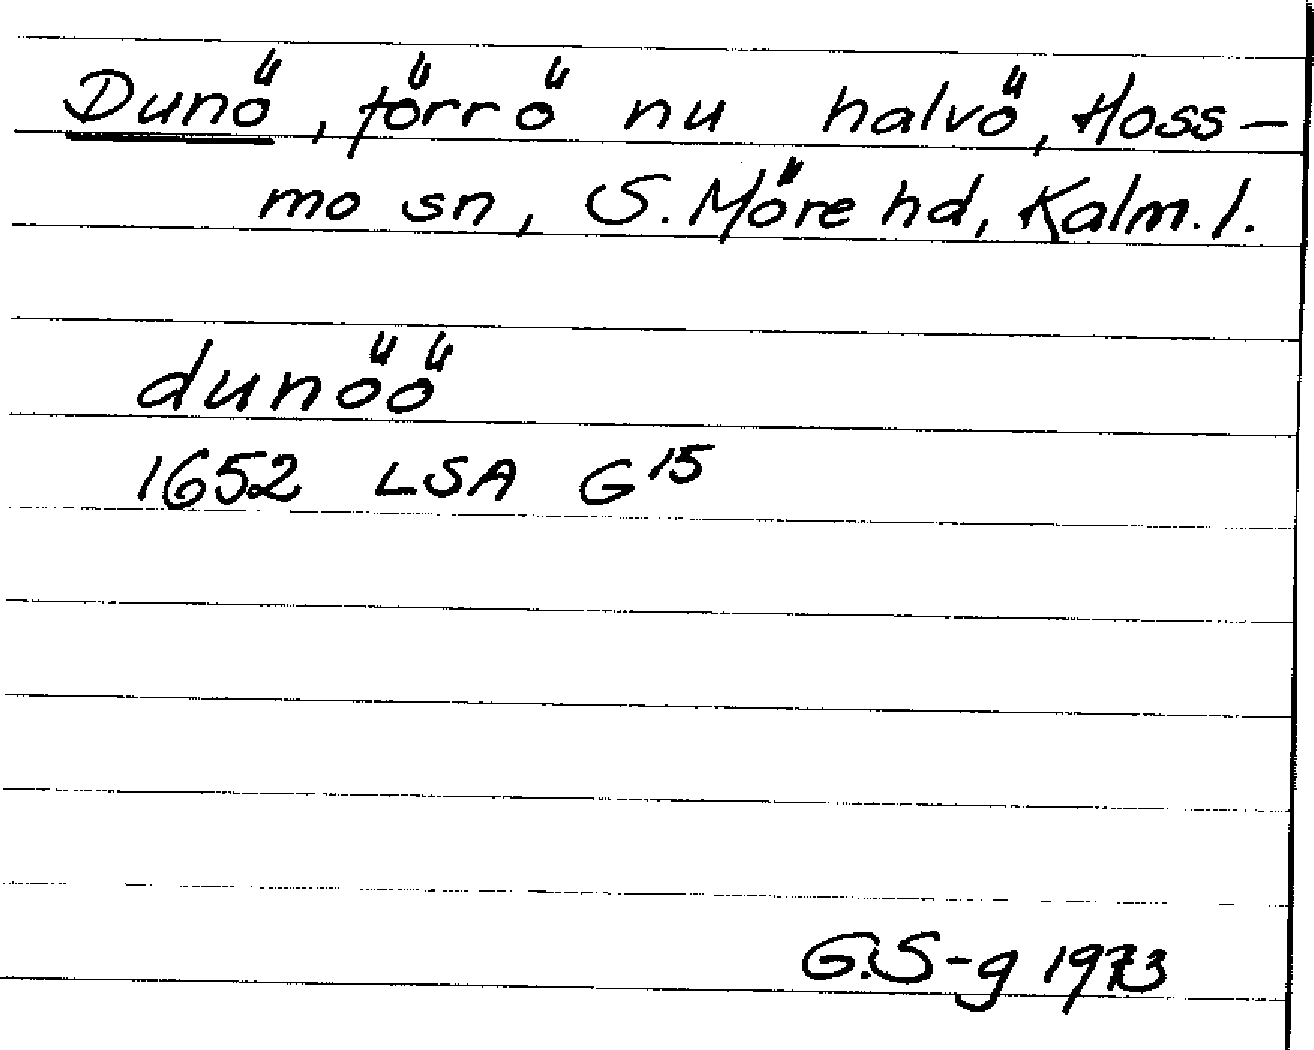 Dunö, förr ö nu halvö, Hoss-
mo sn, S. Möre hd, Kalm. l.
dunöö
1652 LSA G 15
G.S-g 1973